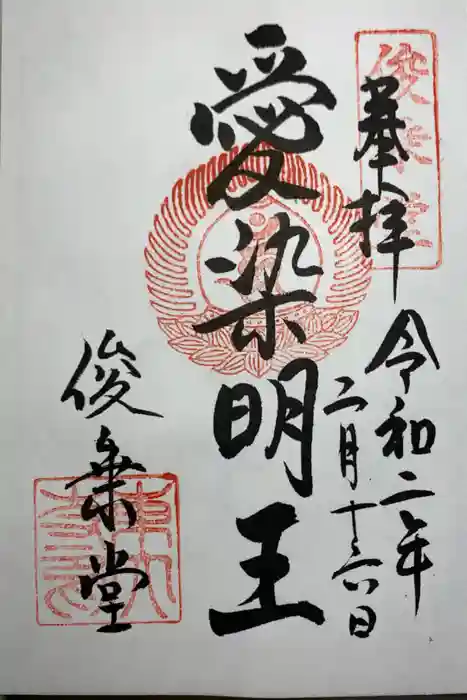 奉拝
俊乗堂
令和二年
二月十六日
愛染明王
俊乗堂